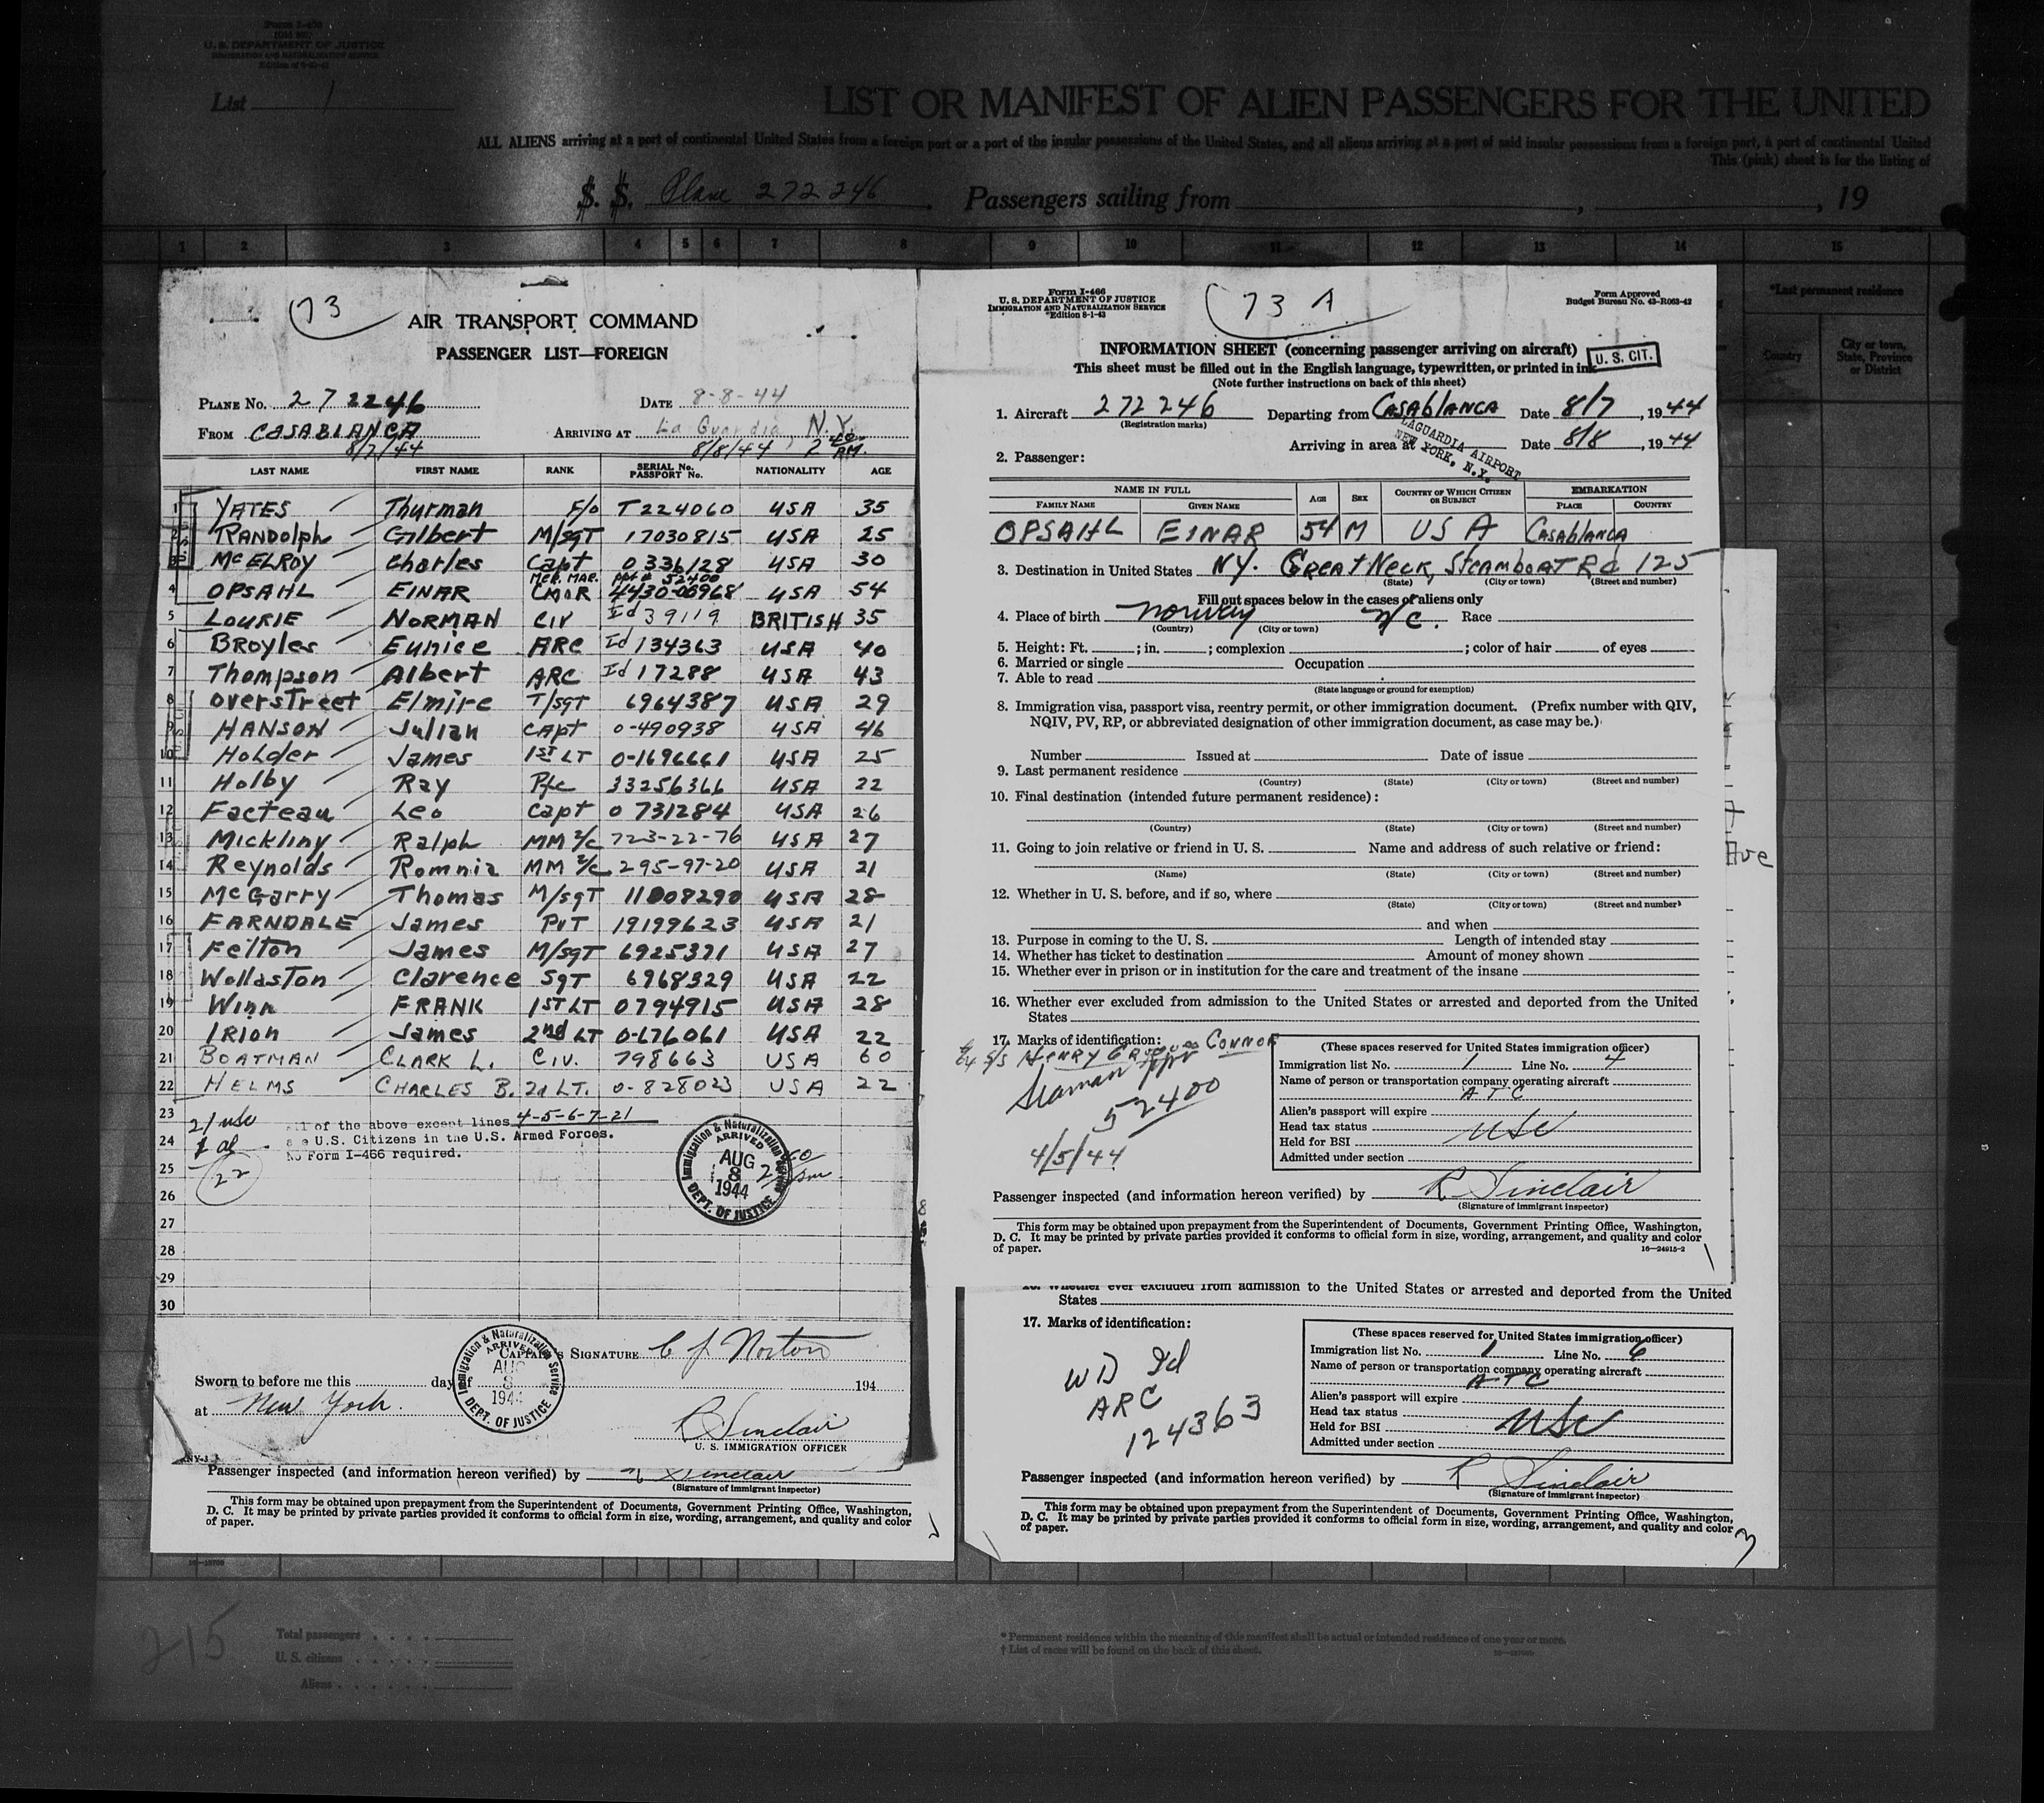 Form I-466
U. S. DEPARTMENT OF JUSTICE
IMMIGRATION AND NATURALIZATION SERVICE
List 1
LIST OR MANIFEST OF ALIEN PASSENGERS FOR THE UNITED
ALL ALIENS arriving at a port of continental United States from a foreign port or a port of the insular possessions of the United States, and all aliens arriving at a port of said insular possessions from a foreign port, a port of continental United
This (pink) sheet is for the listing of
S. S. Plane 272246 Passengers sailing from , , 19
1 2 3 4 5 6 7 8 9 10 11 12 13 14 15
*Last permanent residence
Country
City or town, State, Province or District
73
AIR TRANSPORT COMMAND
PASSENGER LIST—FOREIGN
PLANE NO. 272246 DATE 8-8-44
FROM CASABLANCA ARRIVING AT La Guardia, N.Y.
8/7/44 8/8/44, 2 40 AM.
LAST NAME FIRST NAME RANK SERIAL NO. PASSPORT NO. NATIONALITY AGE
1 YATES Thurman F/o T224060 USA 35
2 RANDOLPH Gilbert M/SGT 17030815 USA 25
3 McELROY Charles Capt 0336128 USA 30
MER. MAR. ppt # 52400
4 OPSAHL EINAR CMDR 4430-00968 USA 54
5 LOURIE NORMAN CIV Id 39119 BRITISH 35
6 Broyles Eunice ARC Id 134363 USA 40
7 Thompson Albert ARC Id 17288 USA 43
8 OverStreet Elmire T/SGT 6964387 USA 29
9 HANSON Julian CAPT 0-490938 USA 46
10 Holder James 1ST LT 0-1696661 USA 25
11 Holby Ray Pfc 33256366 USA 22
12 Facteau Leo Capt 0731284 USA 26
13 Mickliny Ralph MM 2/c 723-22-76 USA 27
14 Reynolds Romnia MM 2/c 295-97-20 USA 21
15 McGarry Thomas M/SGT 11008290 USA 28
16 FARNDALE James PVT 19199623 USA 21
17 Felton James M/SGT 6925371 USA 27
18 Wollaston Clarence SGT 6968329 USA 22
19 Winn FRANK 1ST LT 0794915 USA 28
20 IRION James 2nd LT 0-676061 USA 22
21 BOATMAN CLARK L. CIV. 798663 USA 60
22 HELMS CHARLES B. 2d LT. 0-828023 USA 22
23
24
25
26
27
28
29
30
21 usc
1 al
22
of the above except lines 4-5-6-7-21
are U.S. Citizens in the U.S. Armed Forces.
No Form I-466 required.
Immigration & Naturalization Service
ARRIVED
AUG
8
1944
DEPT. OF JUSTICE
CAPTAIN'S SIGNATURE C J Norton
Sworn to before me this day of 194
at New York.
Immigration & Naturalization Service
ARRIVED
AUG
8
1944
DEPT. OF JUSTICE
R Sinclair
U. S. IMMIGRATION OFFICER
NY-3
Passenger inspected (and information hereon verified) by R Sinclair
(Signature of immigrant inspector)
This form may be obtained upon prepayment from the Superintendent of Documents, Government Printing Office, Washington,
D. C. It may be printed by private parties provided it conforms to official form in size, wording, arrangement, and quality and color
of paper.
Form I-466
U. S. DEPARTMENT OF JUSTICE
IMMIGRATION AND NATURALIZATION SERVICE
Edition 8-1-43
73 A
Form Approved
Budget Bureau No. 43-R063-42
INFORMATION SHEET (concerning passenger arriving on aircraft)
U. S. CIT.
This sheet must be filled out in the English language, typewritten, or printed in ink
(Note further instructions on back of this sheet)
1. Aircraft 272246 Departing from CASABLANCA Date 8/7, 1944
(Registration marks)
Arriving in area at LAGUARDIA AIRPORT NEW YORK, N.Y. Date 8/8 1944
2. Passenger:
NAME IN FULL AGE SEX COUNTRY OF WHICH CITIZEN OR SUBJECT EMBARKATION
FAMILY NAME GIVEN NAME PLACE COUNTRY
OPSAHL EINAR 54 M USA Casablanca
3. Destination in United States NY. GREAT NECK, STEAMBOAT Rd 125
(State) (City or town) (Street and number)
Fill out spaces below in the cases of aliens only
4. Place of birth Norway N/C. Race
(Country) (City or town)
5. Height: Ft. ; in. ; complexion ; color of hair of eyes
6. Married or single Occupation
7. Able to read
(State language or ground for exemption)
8. Immigration visa, passport visa, reentry permit, or other immigration document. (Prefix number with QIV,
NQIV, PV, RP, or abbreviated designation of other immigration document, as case may be.)
Number Issued at Date of issue
9. Last permanent residence
(Country) (State) (City or town) (Street and number)
10. Final destination (intended future permanent residence):
(Country) (State) (City or town) (Street and number)
11. Going to join relative or friend in U. S. Name and address of such relative or friend:
(Name) (State) (City or town) (Street and number)
12. Whether in U. S. before, and if so, where
(State) (City or town) (Street and number)
and when
13. Purpose in coming to the U. S. Length of intended stay
14. Whether has ticket to destination Amount of money shown
15. Whether ever in prison or in institution for the care and treatment of the insane
16. Whether ever excluded from admission to the United States or arrested and deported from the United
States
17. Marks of identification:
S/S HENRY CONNOR
Seaman ppt
52400
4/5/44
(These spaces reserved for United States immigration officer)
Immigration list No. 1 Line No. 4
Name of person or transportation company operating aircraft
ATC
Alien's passport will expire
Head tax status USC
Held for BSI
Admitted under section
Passenger inspected (and information hereon verified) by R Sinclair
(Signature of immigrant inspector)
This form may be obtained upon prepayment from the Superintendent of Documents, Government Printing Office, Washington,
D. C. It may be printed by private parties provided it conforms to official form in size, wording, arrangement, and quality and color
of paper.
16—24915-2
Ave
16. Whether ever excluded from admission to the United States or arrested and deported from the United
States
17. Marks of identification:
WD Id
ARC
124363
(These spaces reserved for United States immigration officer)
Immigration list No. 1 Line No. 6
Name of person or transportation company operating aircraft
ATC
Alien's passport will expire
Head tax status
Held for BSI USC
Admitted under section
Passenger inspected (and information hereon verified) by R Sinclair
(Signature of immigrant inspector)
This form may be obtained upon prepayment from the Superintendent of Documents, Government Printing Office, Washington,
D. C. It may be printed by private parties provided it conforms to official form in size, wording, arrangement, and quality and color
of paper.
3
215
Total passengers
U. S. citizens
Aliens
* Permanent residence within the meaning of this manifest shall be actual or intended residence of one year or more.
† List of races will be found on the back of this sheet.